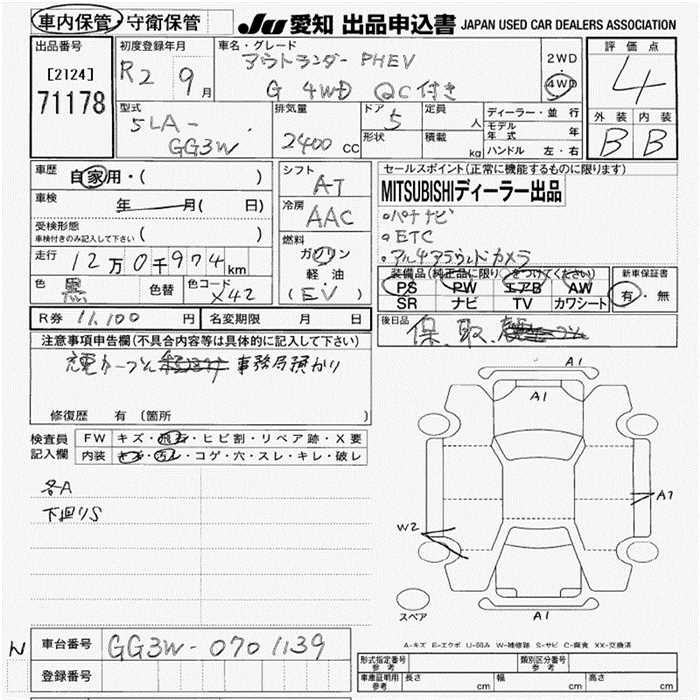 車内保管・守衛保管
JU愛知 出品申込書 JAPAN USED CAR DEALERS ASSOCIATION
出品番号
[2124]
71178
初度登録年月
R2 9月
車名・グレード
アウトランダー PHEV
G 4WD QC付き
2WD
4WD
評価点
4
外装 内装
B B
型式
5LA-
GG3W
排気量
2400 cc
ドア 5
形状
定員 人
積載 kg
ディーラー・並行
モデル年式 年
ハンドル 左・右
車歴 自家用・( )
車検 年 月( 日)
受検形態
車検付きのみ記入して下さい ( )
走行 12万0千974km
色 黒 色替 色コード X42
シフト
AT
冷房
AAC
燃料
ガソリン
軽油・
(EV)
セールスポイント(正常に機能するものに限ります)
MITSUBISHIディーラー出品
・パナナビ
・ETC
・アルチアラウンドカメラ
装備品(純正品に限り○をつけてください)
PS PW エアB AW
SR ナビ TV カワシート
新車保証書
有・無
R券 11,100 円 名変期限 月 日
後日品 保、取、
注意事項申告欄(不具合内容等は具体的に記入して下さい)
充電ケーブル 事務局預かり
修復歴 有 (箇所 )
検査員記入欄
FW キズ・飛石・ヒビ割・リペア跡・X要
内装 キズ・汚レ・コゲ・穴・スレ・キレ・破レ
各A
下廻りS
A1
A1
A7
W2
A1
スペア
A-キズ E-エクボ U-凹み W-補修跡 S-サビ C-腐食 XX-交換済
N
車台番号 GG3W-0701139
登録番号
形式指定番号 参考
類別区分番号 参考
車庫証明用 参考 長さ cm 幅 cm 高さ cm